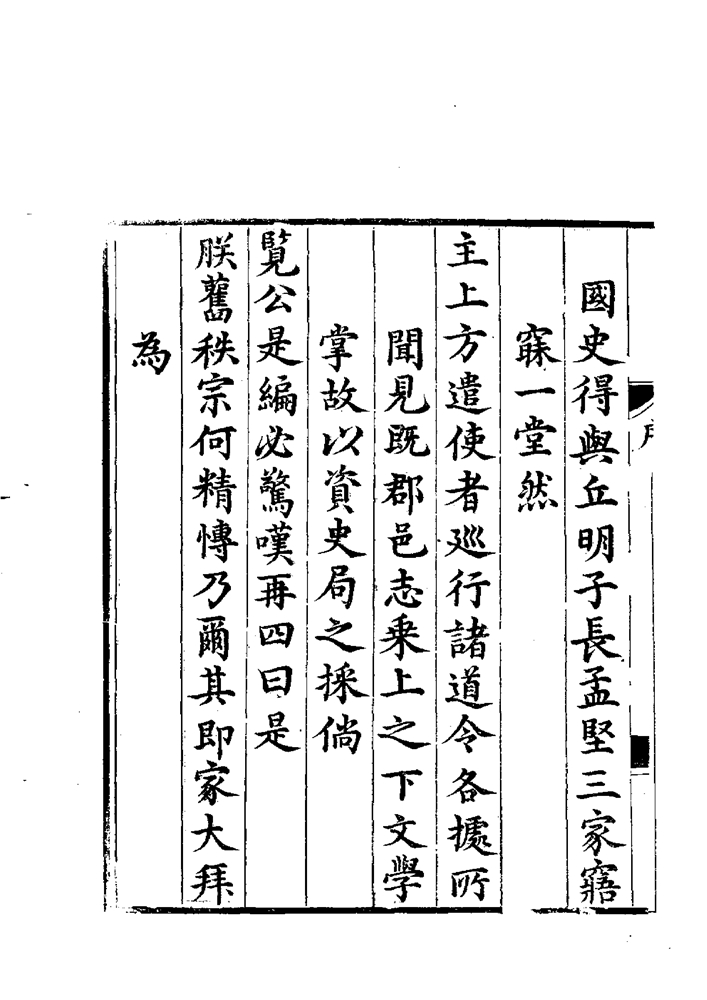 國史得與丘明子長孟堅三家寤
寐一堂然
主上方遣使者巡行諸道令各據所
聞見既郡邑志乗上之下文學
掌故以資史局之採倘
覽公是編必驚嘆再四曰是
朕舊秩宗何精慱乃爾其即家大拜
為